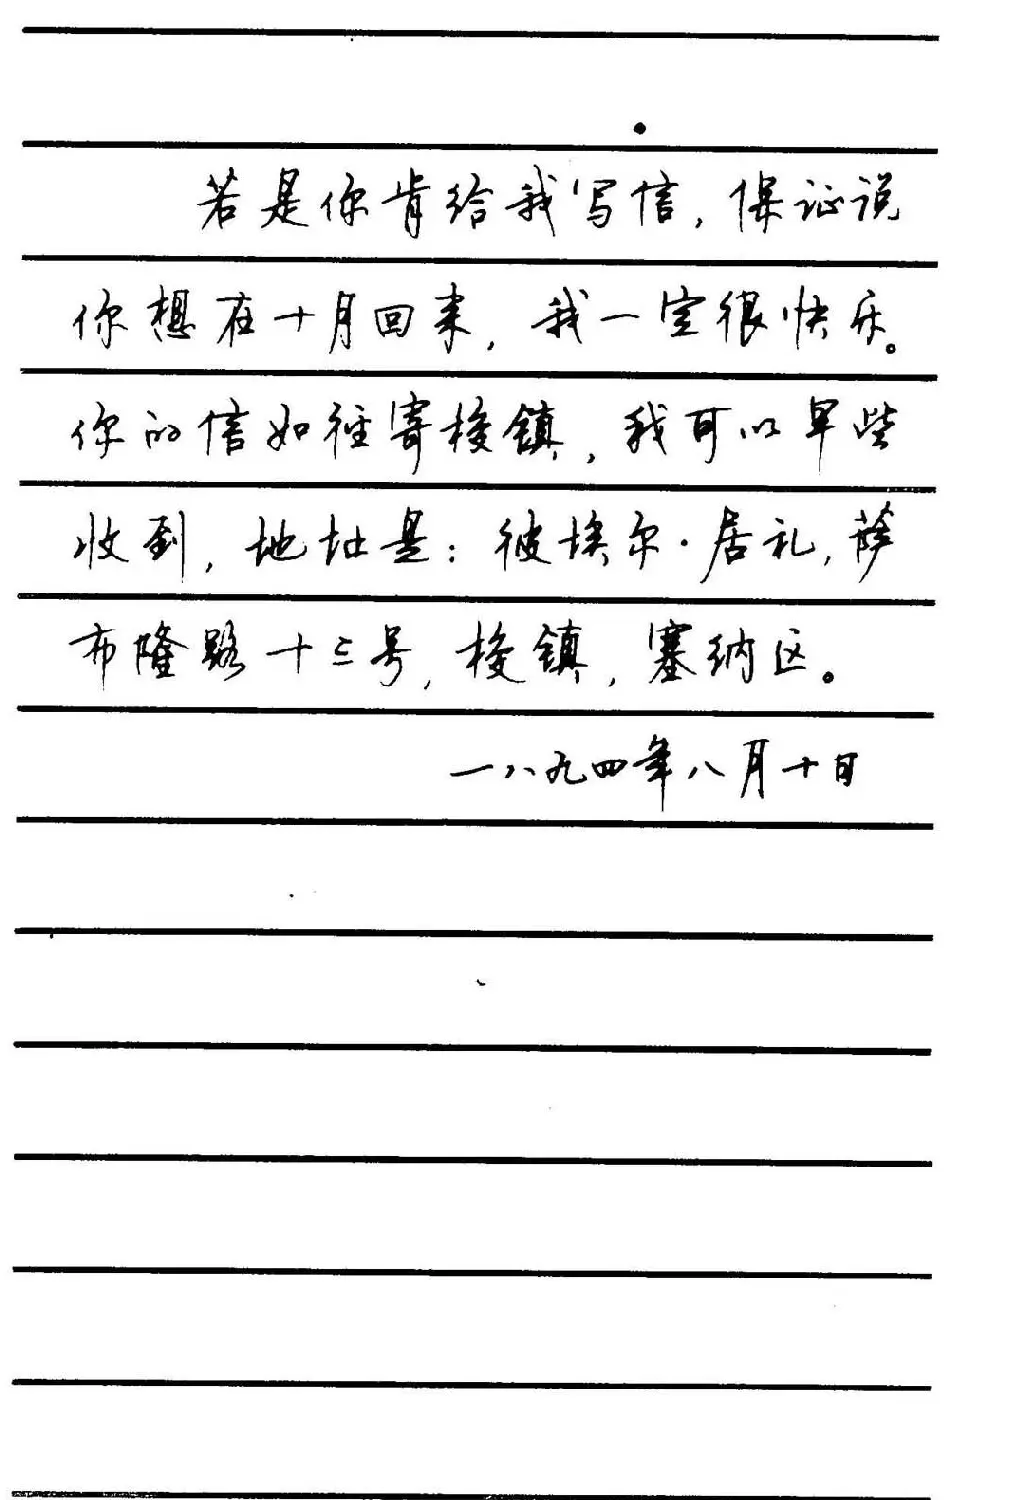 若是你肯给我写信，保证说
你想在十月回来，我一定很快乐。
你的信如径寄梭镇，我可以早些
收到，地址是：彼埃尔·居礼，萨
布隆路十三号，梭镇，塞纳区。
一八九四年八月十日